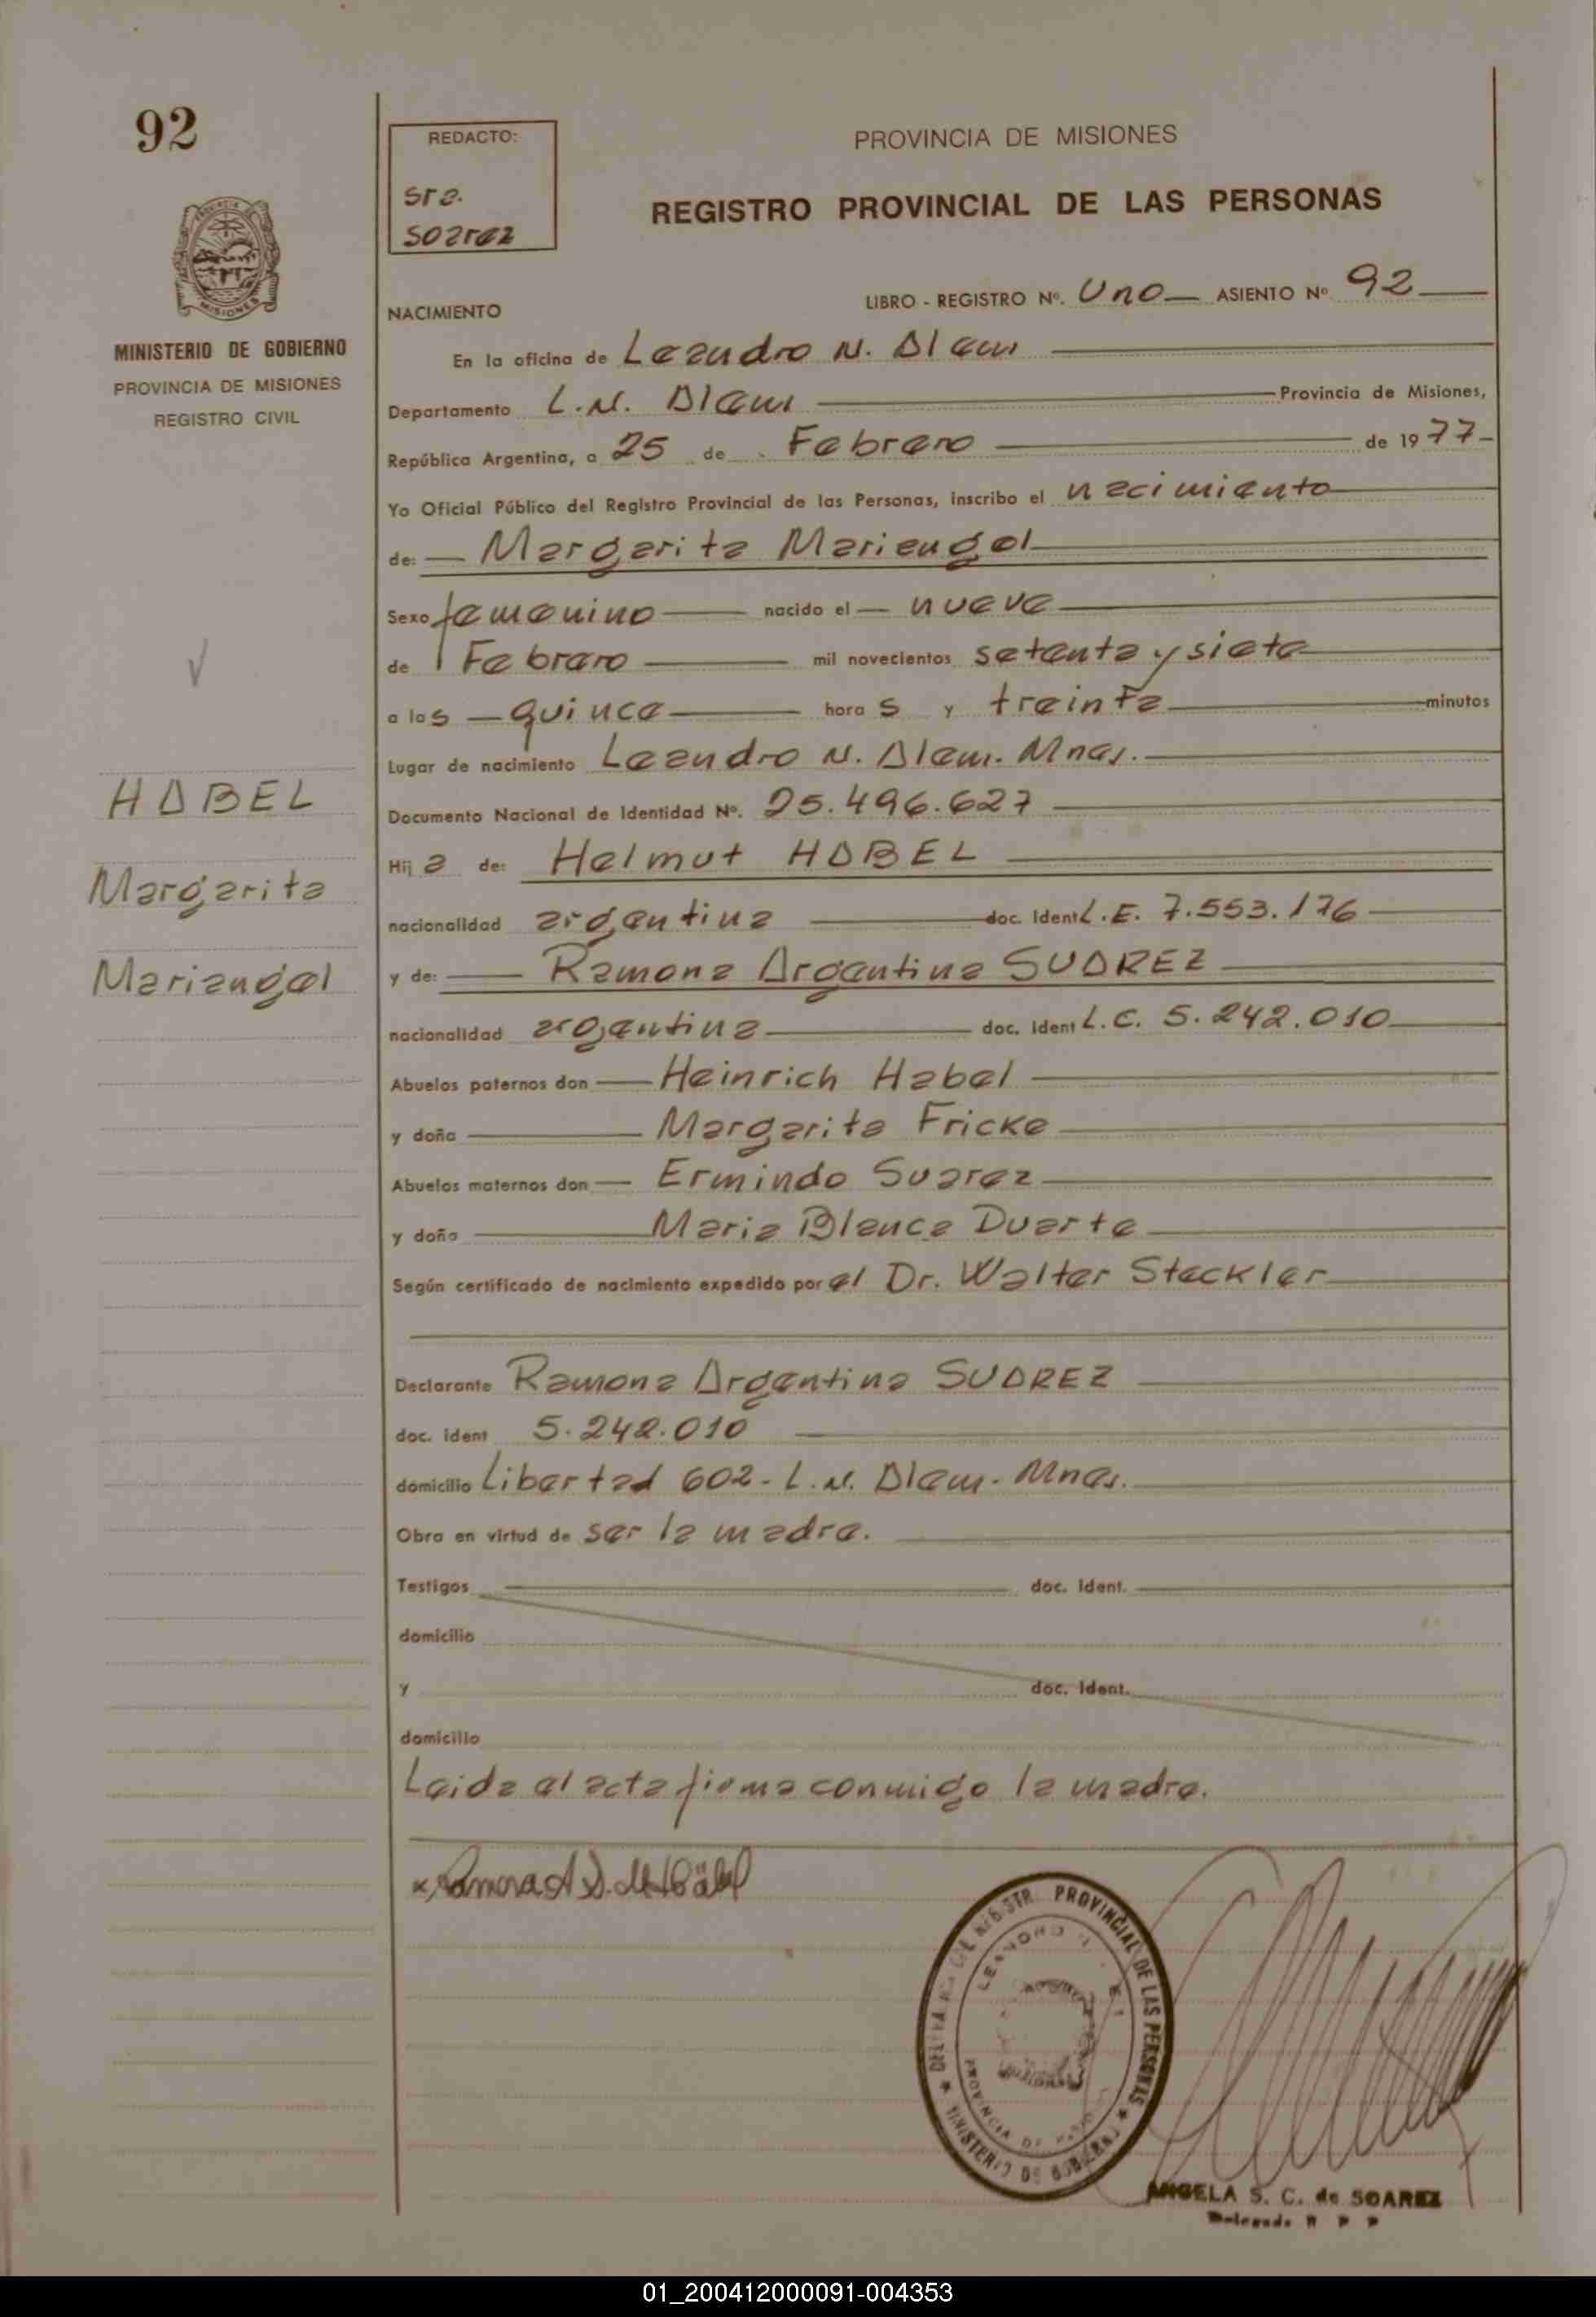 92
MINISTERIO DE GOBIERNO
PROVINCIA DE MISIONES
REGISTRO CIVIL
HABEL
Margarita
Mariangel
REDACTO:
Sra.
Soarez
PROVINCIA DE MISIONES
REGISTRO PROVINCIAL DE LAS PERSONAS
NACIMIENTO
LIBRO - REGISTRO Nº. Uno ASIENTO Nº 92
En la oficina de Leandro N. Alem
Departamento L.N. Alem Provincia de Misiones,
República Argentina, a 25 de Febrero de 1977
Yo Oficial Público del Registro Provincial de las Personas, inscribo el nacimiento
de: Margarita Mariengel
Sexo femenino nacido el nueve
de Febrero mil novecientos setenta y siete
a las quince horas y treinta minutos
Lugar de nacimiento Leandro N. Alem. Mnes.
Documento Nacional de Identidad Nº. 25.496.627
Hija de: Helmut HABEL
nacionalidad argentina doc. Ident L.E. 7.553.176
y de: Ramona Argentina SUAREZ
nacionalidad argentina doc. Ident L.C. 5.242.010
Abuelos paternos don Heinrich Habel
y doña Margarita Fricke
Abuelos maternos don Ermindo Suarez
y doña Maria Blanca Duarte
Según certificado de nacimiento expedido por el Dr. Walter Steckler
Declarante Ramona Argentina SUAREZ
doc. ident 5.242.010
domicilio Libertad 602- L.N. Alem- Mnes.
Obra en virtud de ser la madre.
Testigos doc. Ident.
domicilio
y doc. Ident.
domicilio
Leida el acta firma conmigo la madre.
x Ramona A S. de Häbel
REGISTR PROVINCIAL DE LAS PERSONAS
MINISTERIO DE GOBIERNO
LEANDRO N.
PROVINCIA DE
ANGELA S. C. de SOAREZ
Delegada R P P
01_200412000091-004353